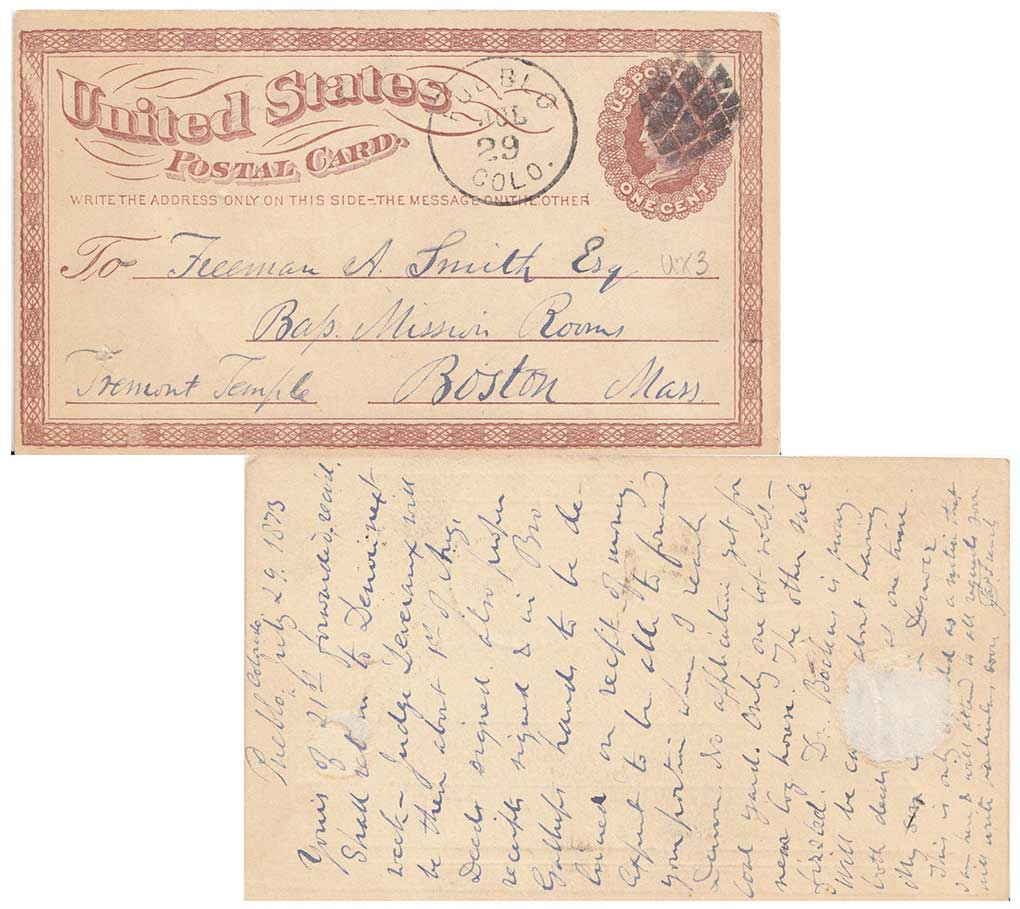 United States
POSTAL CARD.
WRITE THE ADDRESS ONLY ON THIS SIDE-THE MESSAGE ON THE OTHER
PUEBLO
JUL
29
COLO.
U.S. POST
ONE CENT
To Freeman A. Smith Esq
UX3
Bap. Mission Rooms
Tremont Temple Boston Mass.
Pueblo, Colorado July 29. 1873
Yours of 21st forwarded, rec'd.
Shall return to Denver next
week - Judge Devereaux will
be then about 1st of Aug,
Deeds signed also proper
receipts signed & in Bro
Gallups hands to be de-
livered on receipt of money.
Expect to be able to forward
your portion when I reach
Denver. No application yet for
Coal yard. Only one lot sold -
near log house. The other sale
fizzled. D. Backus is away
Will be about having
both deeds at one time
My son is in Denver
This is only as a notice that
I am & will attend to all requests soon
will write particulars soon